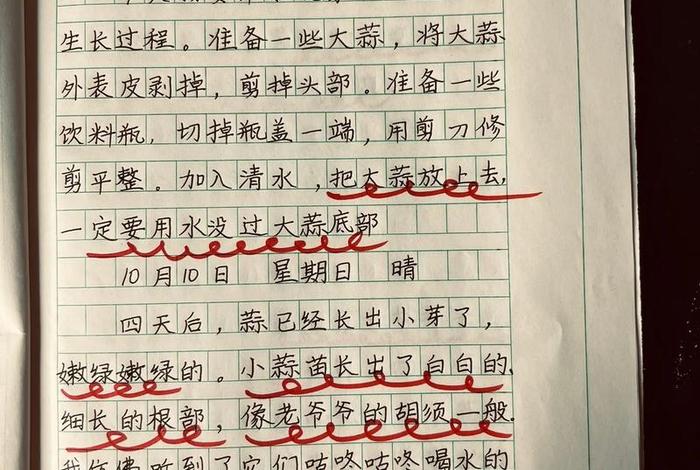 生长过程。准备一些大蒜，将大蒜
外表皮剥掉，剪掉头部。准备一些
饮料瓶，切掉瓶盖一端，用剪刀修
剪平整。加入清水，把大蒜放上去，
一定要用水没过大蒜底部
10月10日 星期日 晴
四天后，蒜已经长出小芽了，
嫩绿嫩绿的。小蒜苗长出了白白的、
细长的根部，像老爷爷的胡须一般.
我仿佛听到了它们咕咚咕咚喝水的